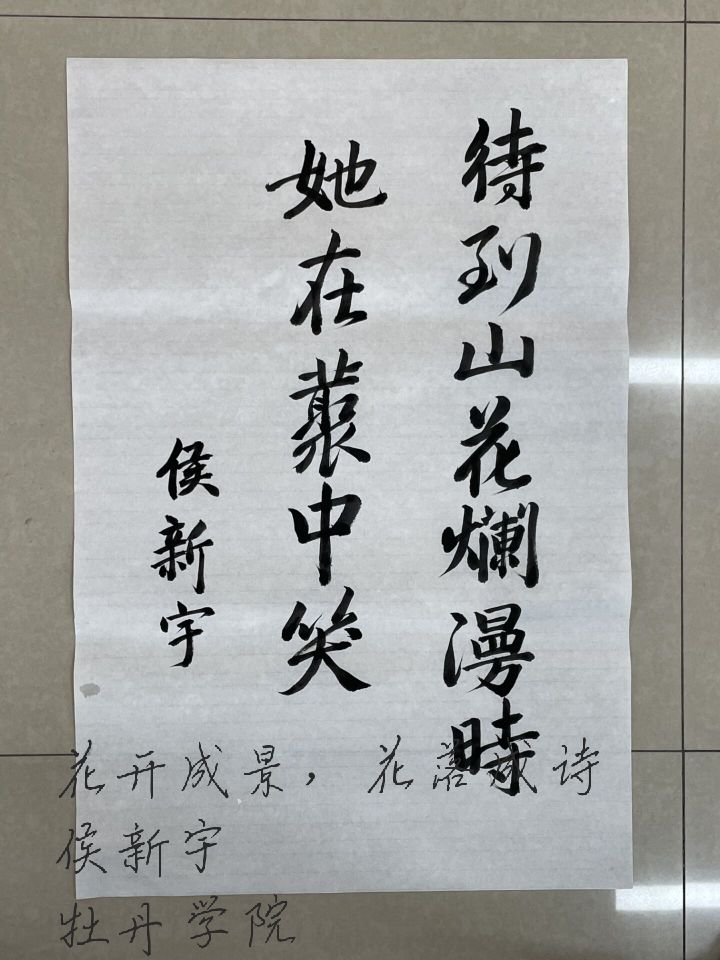 待到山花爛漫時
她在藂中笑
侯新宇
花开成景，花落成诗
侯新宇
牡丹学院